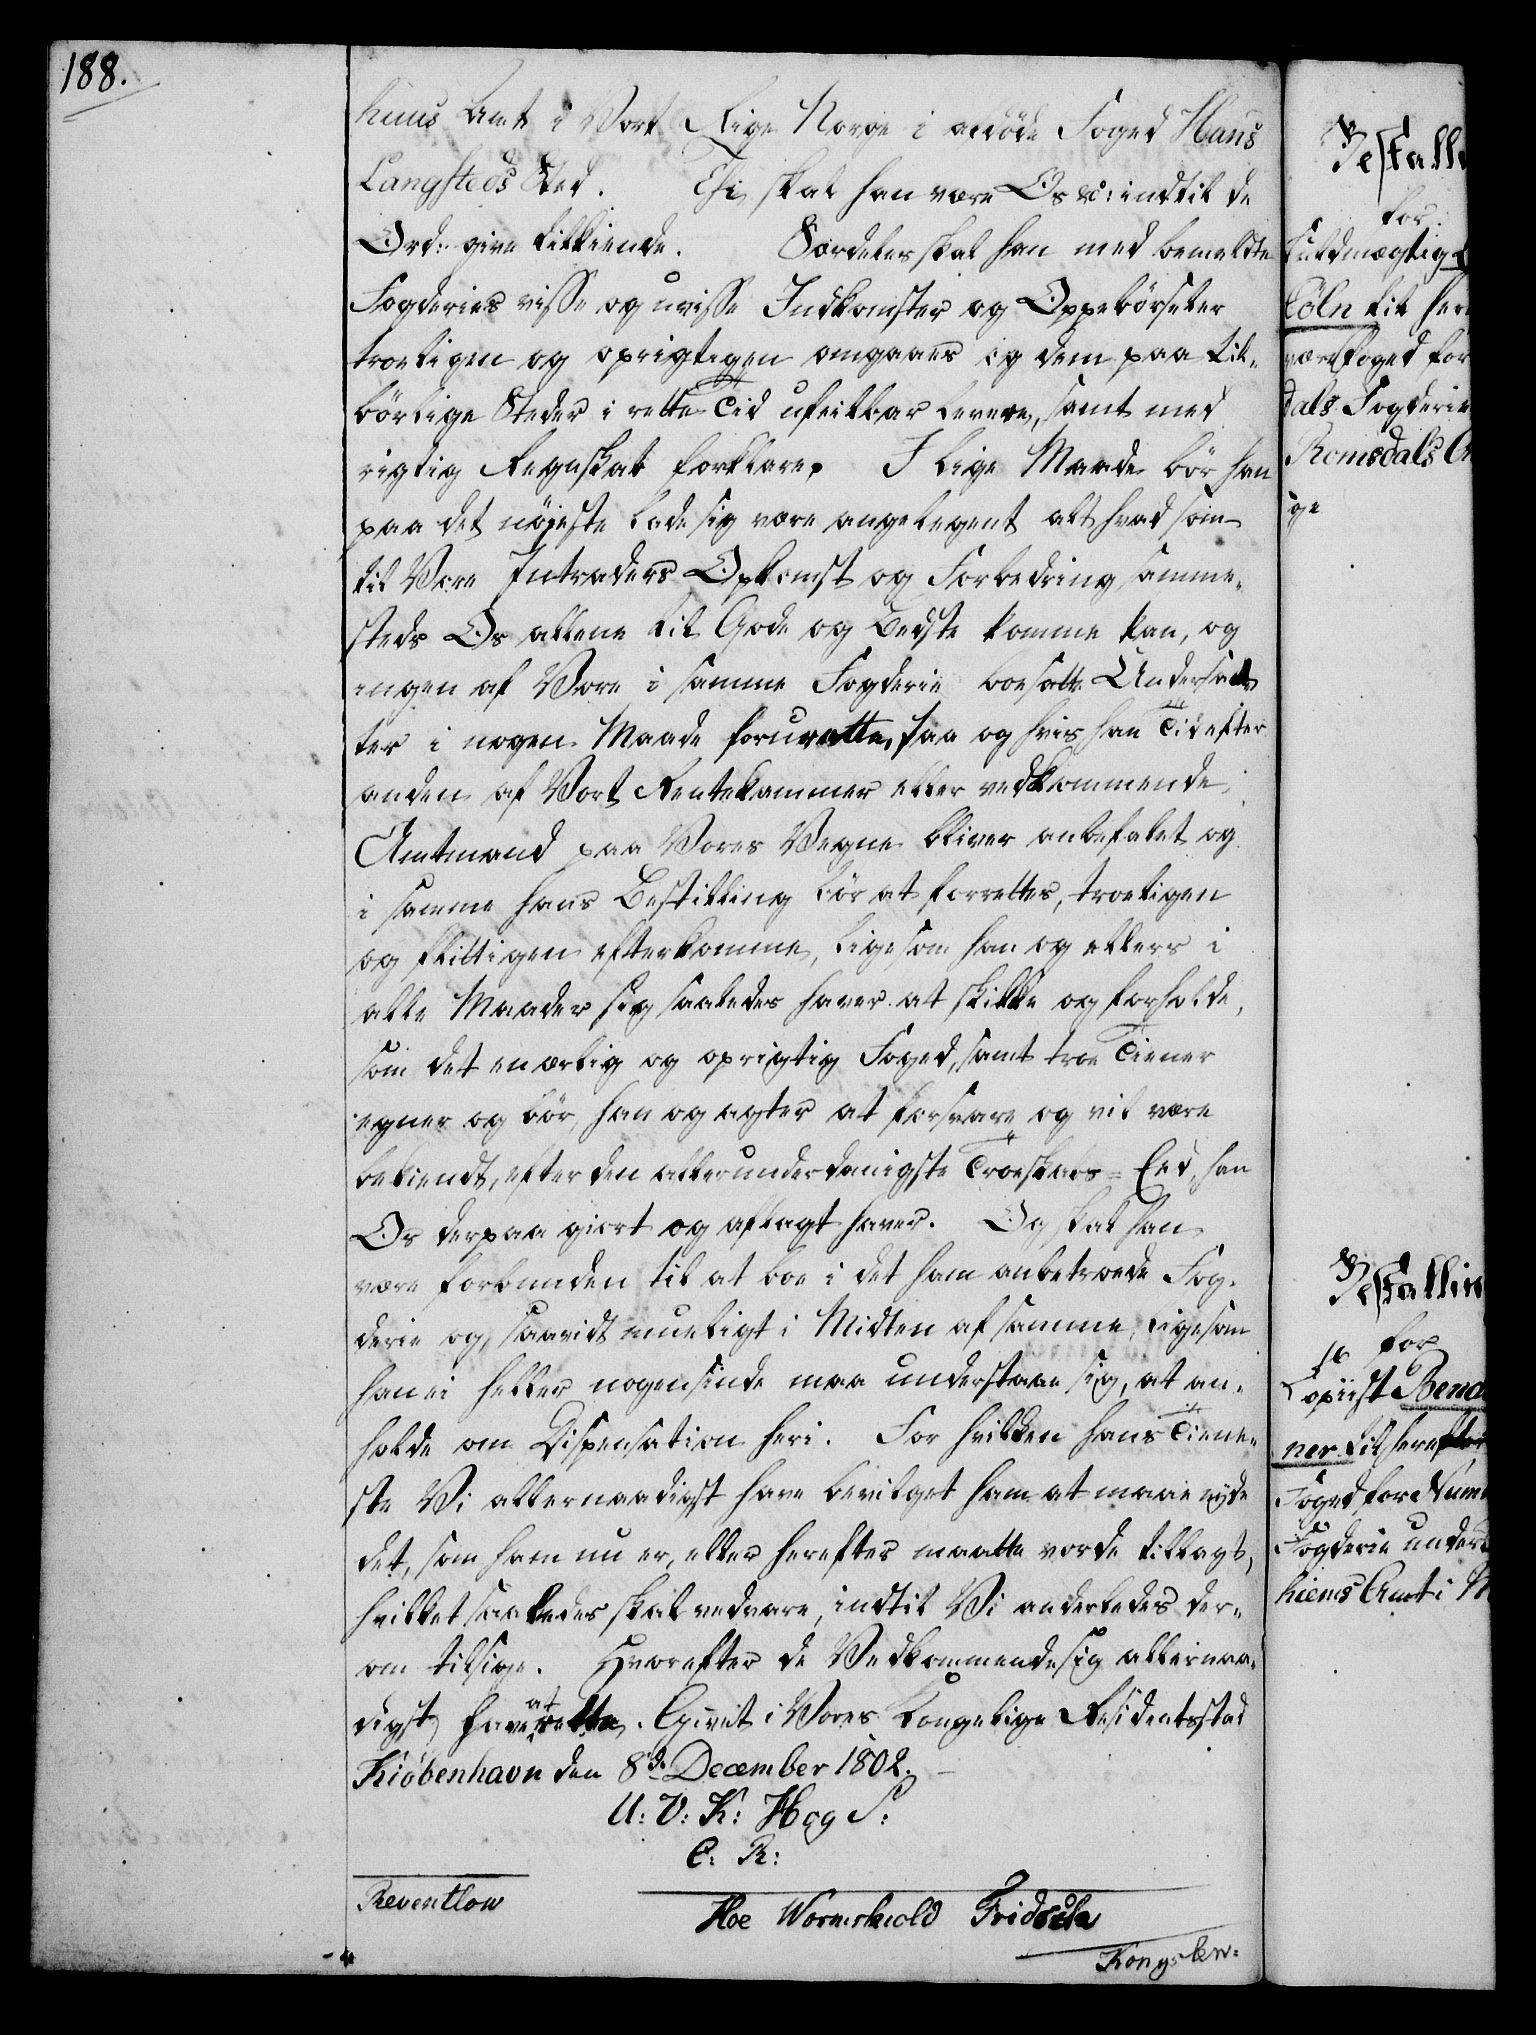 188.
huus Amt i Vort Rige Norge i afdöde Foged Hans
Langsteds Sted. Thi skal han være Os &c: indtil de
Ord: give tilkiende. Særdeles skal han med bemeldte
Fogderies visse og uvisse Indkomster og Oppebörseler
troeligen og oprigtigen omgaaes og dem paa til-
börlige Steder i rette Tid ufeilbar levere, samt med
rigtig Regnskab forklare. I lige Maade bör han
paa det nöjeste lade sig være angelegent alt hvad som
til Vore Intraders Opkomst og Forbedring samme-
steds Os allene til Gode og Bedste komme kan, og
ingen af Vore i samme Fogderie boesatte Undersaat-
ter i nogen Maade foruratte, saa og hvis han Tid efter
anden af Vort Rentekammer eller vedkommende
Amtmand paa Vores Vegne bliver anbefalet og
i samme hans Bestilling bör at forrettes, troeligen
og flittigen efterkomme, ligesom han og ellers i
alle Maader sig saaledes haver at skikke og forholde,
som det en ærlig og oprigtig Foged, samt troe Tiener
egner og bör, han og agter at forsvare og vil være
bekiendt, efter den allerunderdanigste Troeskabs-Eed, han
Os derpaa giort og aflagt haver. Og skal han
være forbunden til at boe i det ham anbetroede Fog-
derie og, saavidt mueligt i Midten af samme, ligesom
han ei heller nogensinde maa understaae sig, at an-
holde om Dispensation heri. For hvilken hans Tiene-
ste Vi allernaadigst have bevilget ham at maae nyde
det, som ham nu er, eller herefter maatte vorde tillagt,
hvilket saaledes skal vedvare, indtil Vi anderledes der-
om tilsige. Hvorefter de Vedkommende sig allernaa-
digst have at rette. Givet i Vores Kongelige Residentsstad
Kiöbenhavn den 8de December 1802.
U: V: K: H og S:
C. R:
Reventlow
Hoe Wormskiold Fridsch
Kongslew:
Bestalli
for
Fuldmægtig
Cöln til her
være Foged for
dals Fogderie
Romsdals A
ge
Bestallin
for
Copiist Bend
ner til herefter
Foged for Num
Fogderie under
hiems Amt i N